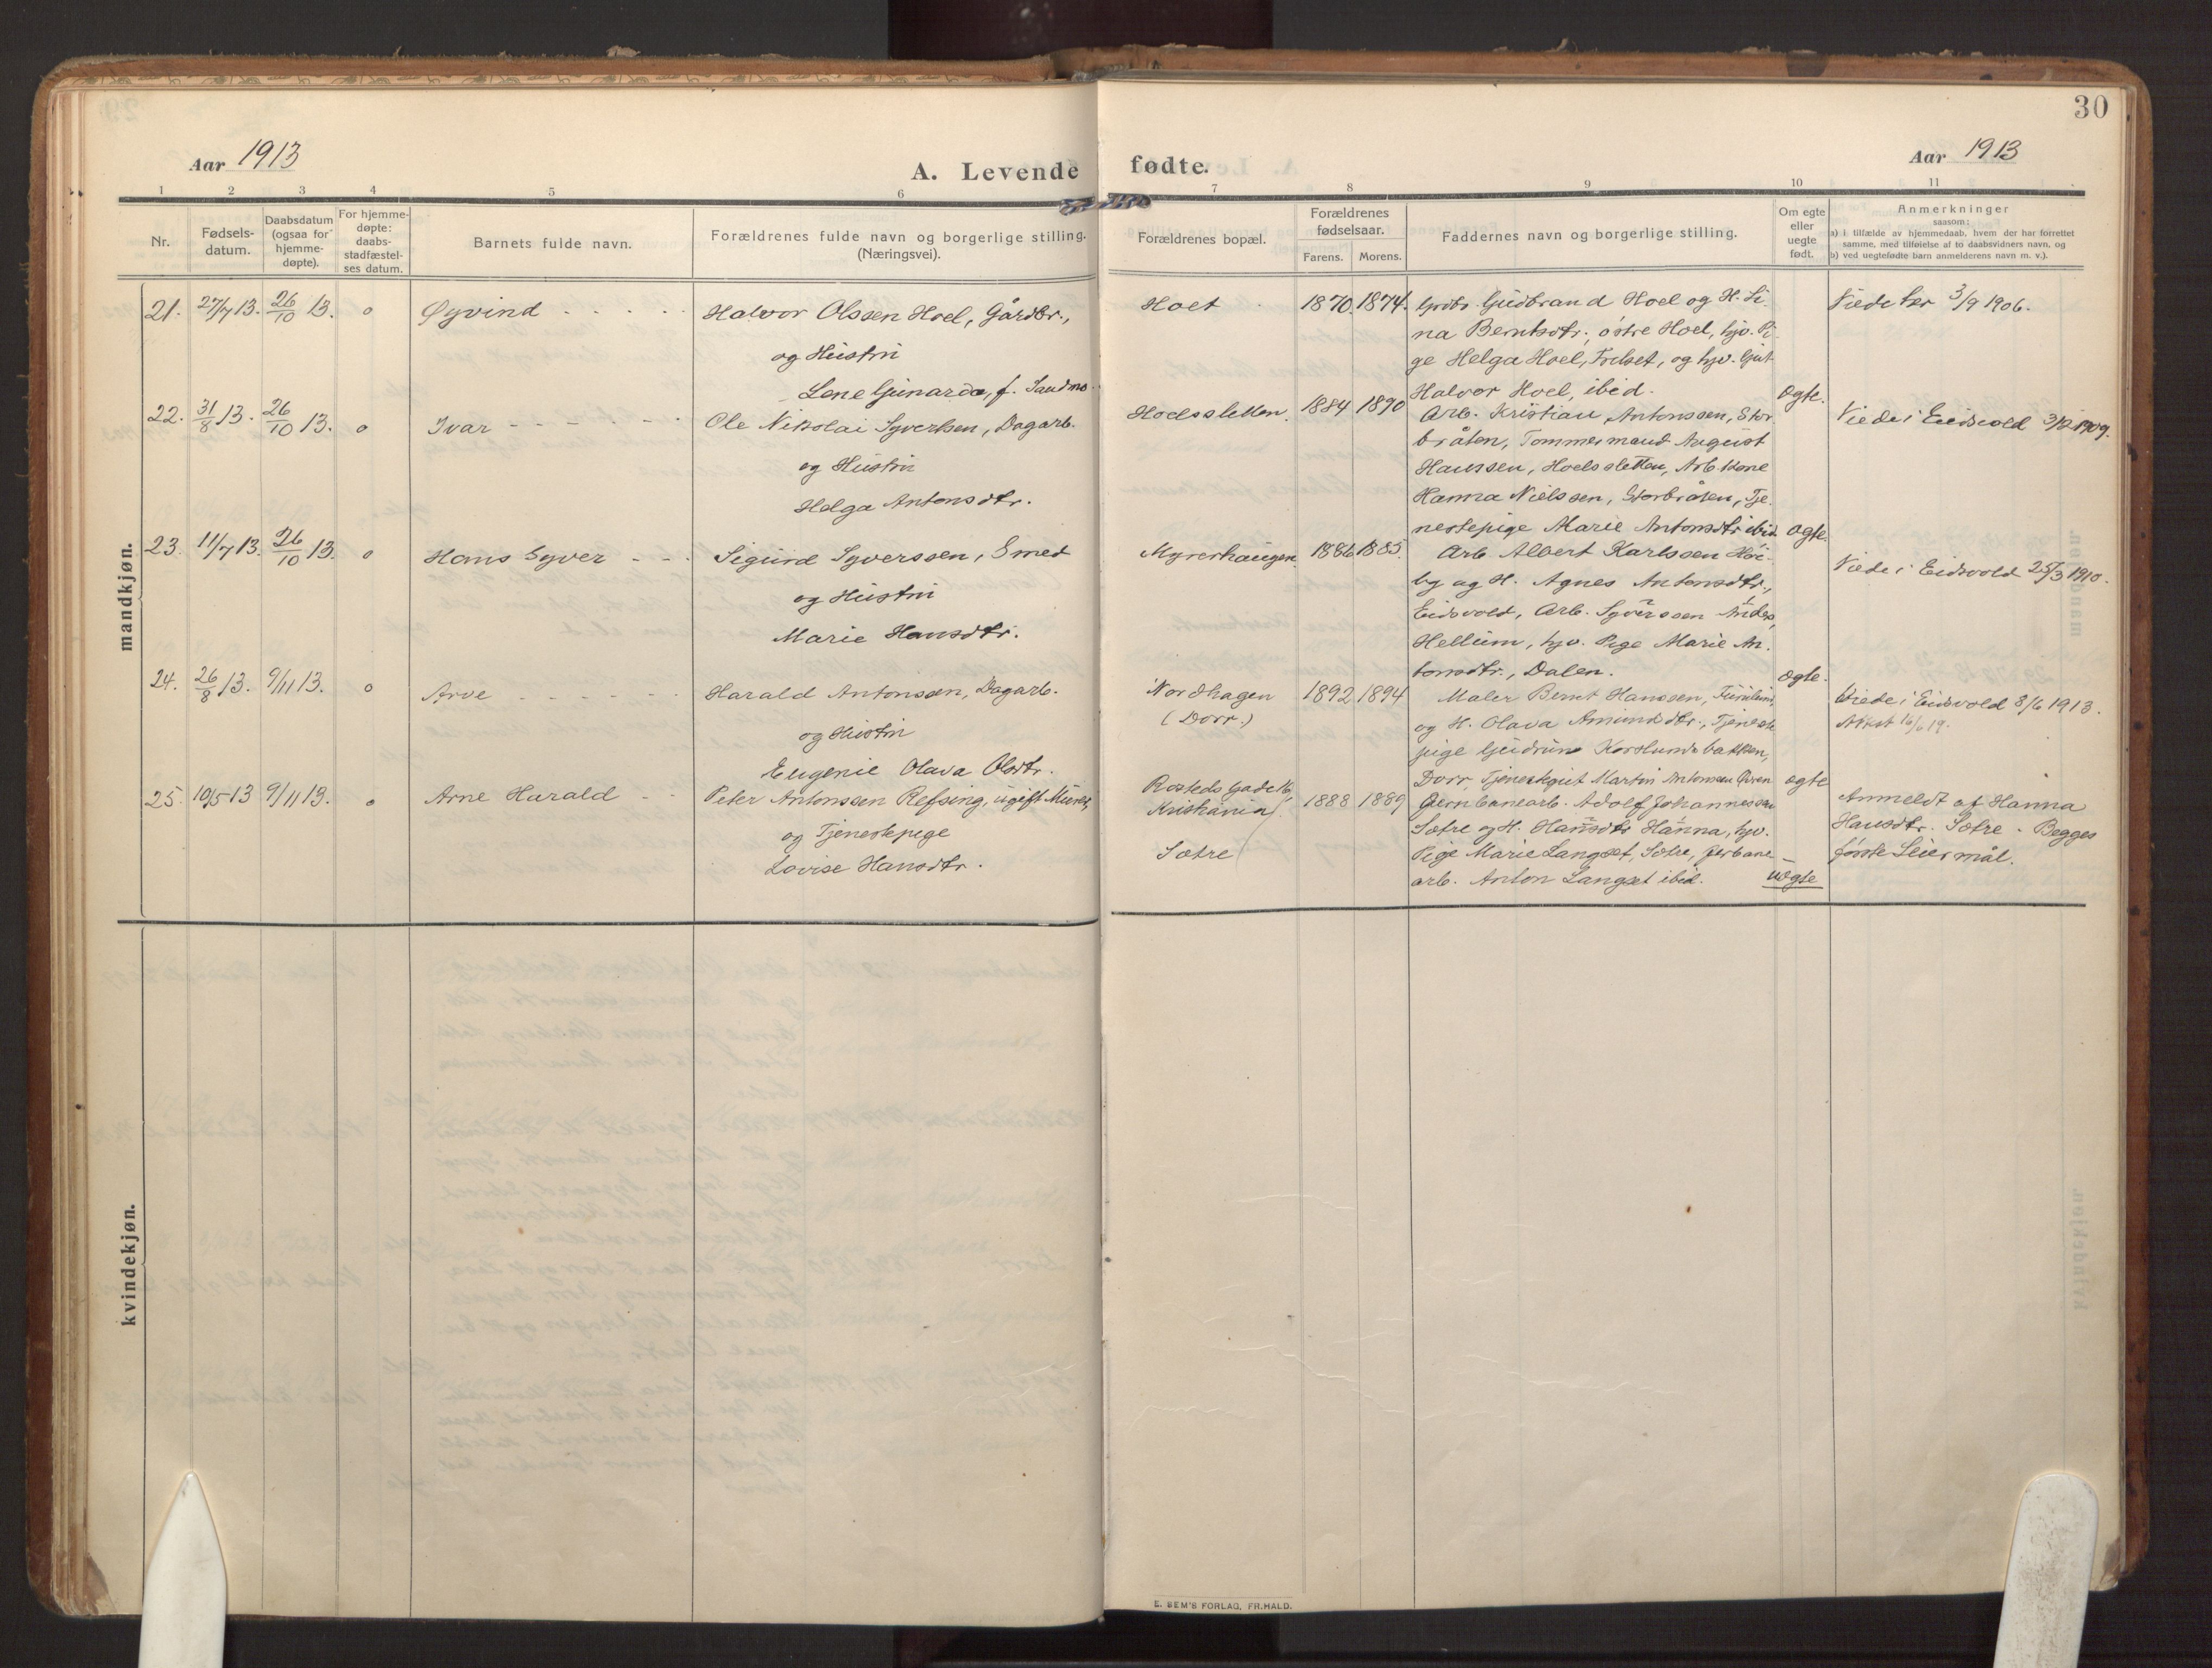 30
Aar 1913
A. Levende fødte.
Aar 1913
1 2 3 4 5 6 7 8 9 10 11
Nr.
Fødsels-
datum.
Daabsdatum
(ogsaa for
hjemme-
døpte).
For hjemme-
døpte:
daabs-
stadfæstel-
ses datum.
Barnets fulde navn.
Forældrenes fulde navn og borgerlige stilling.
(Næringsvei).
Forældrenes bopæl.
Forældrenes
fødselsaar.
Farens. Morens.
Faddernes navn og borgerlige stilling.
Om egte
eller
uegte
født.
Anmerkninger
saasom:
a) i tilfælde av hjemmedaab, hvem der har forrettet
samme, med tilføielse af to daabsvidners navn, og
b) ved uegtefødte barn anmelderens navn m. v.).
mandkjøn.
21. 27/7 13. 26/10 13. o Øyvind
Halvor Olssen Hoel, Gårdbr.,
og Hustru
Lene Gunarda, f. Sandmo
Hoel 1870. 1874.
Grdbr. Gudbrand Hoel og H. Li-
na Berntsdtr., østre Hoel, hjv. Pi-
ge Helga Hoel, Frilset, og hjv. Gut
Halvor Hoel, ibid.
ægte.
Viede her 3/9 1906.
22. 31/8 13. 26/10 13. o Ivar
Ole Nikolai Syversen, Dagarb.
og Hustru
Helga Antonsdtr.
Hoelssletten. 1884 1890
Arb. Kristian Antonssen, Stor-
bråten, Tømmermand August
Hanssen, Hoelssletten, Arb. kone
Hanna Nielssen, Storbråten, Tje-
nestepige Marie Antonsdtr ibid.
ægte.
Viede i Eidsvold 3/12 1909.
23. 11/7 13. 26/10 13. o Hans Syver
Sigurd Syverssen, Smed
og Hustru
Marie Hansdtr.
Myrerhaugen 1886 1885.
Arb. Albert Karlssen Høi-
by og H. Agnes Antonsdtr.,
Eidsvold, Arb. Syverssen Anders,
Hellum, hjv. Pige Marie An-
tonsdtr., Dalen.
ægte.
Viede i Eidsvold 25/3 1910.
24. 26/8 13. 9/11 13. o Arve
Harald Antonssen, Dagarb.
og Hustru
Eugenie Olava Olsdtr.
Nordhagen
(Dorr.)
1892 1894
Maler Bernt Hanssen,
og H. Olava Amundsdtr., Tjeneste
pige Gudrun Korslundsbakken,
Dorr, Tjenestegut Martin Antonssen
ægte
Viede i Eidsvold 8/6 1913.
Attest 16/6 19.
25. 10/5 13 9/11 13. o Arne Harald
Peter Antonssen Refsing, ugift Murer,
og Tjenestepige
Lovise Hansdtr.
Rosteds Gade 16,
Kristiania
Sætre
1888 1889
Jernbanearb. Adolf Johannessen
Sætre og H. Hansdtr Hanna, hjv.
Pige Marie Langset, Sætre, Jerbane-
arb. Anton Langset ibid.
uægte
Anmeldt af Hanna
Hansdtr. Sætre. Begges
første Leiermål.
kvindekjøn.
E. SEM'S FORLAG, FR.HALD.